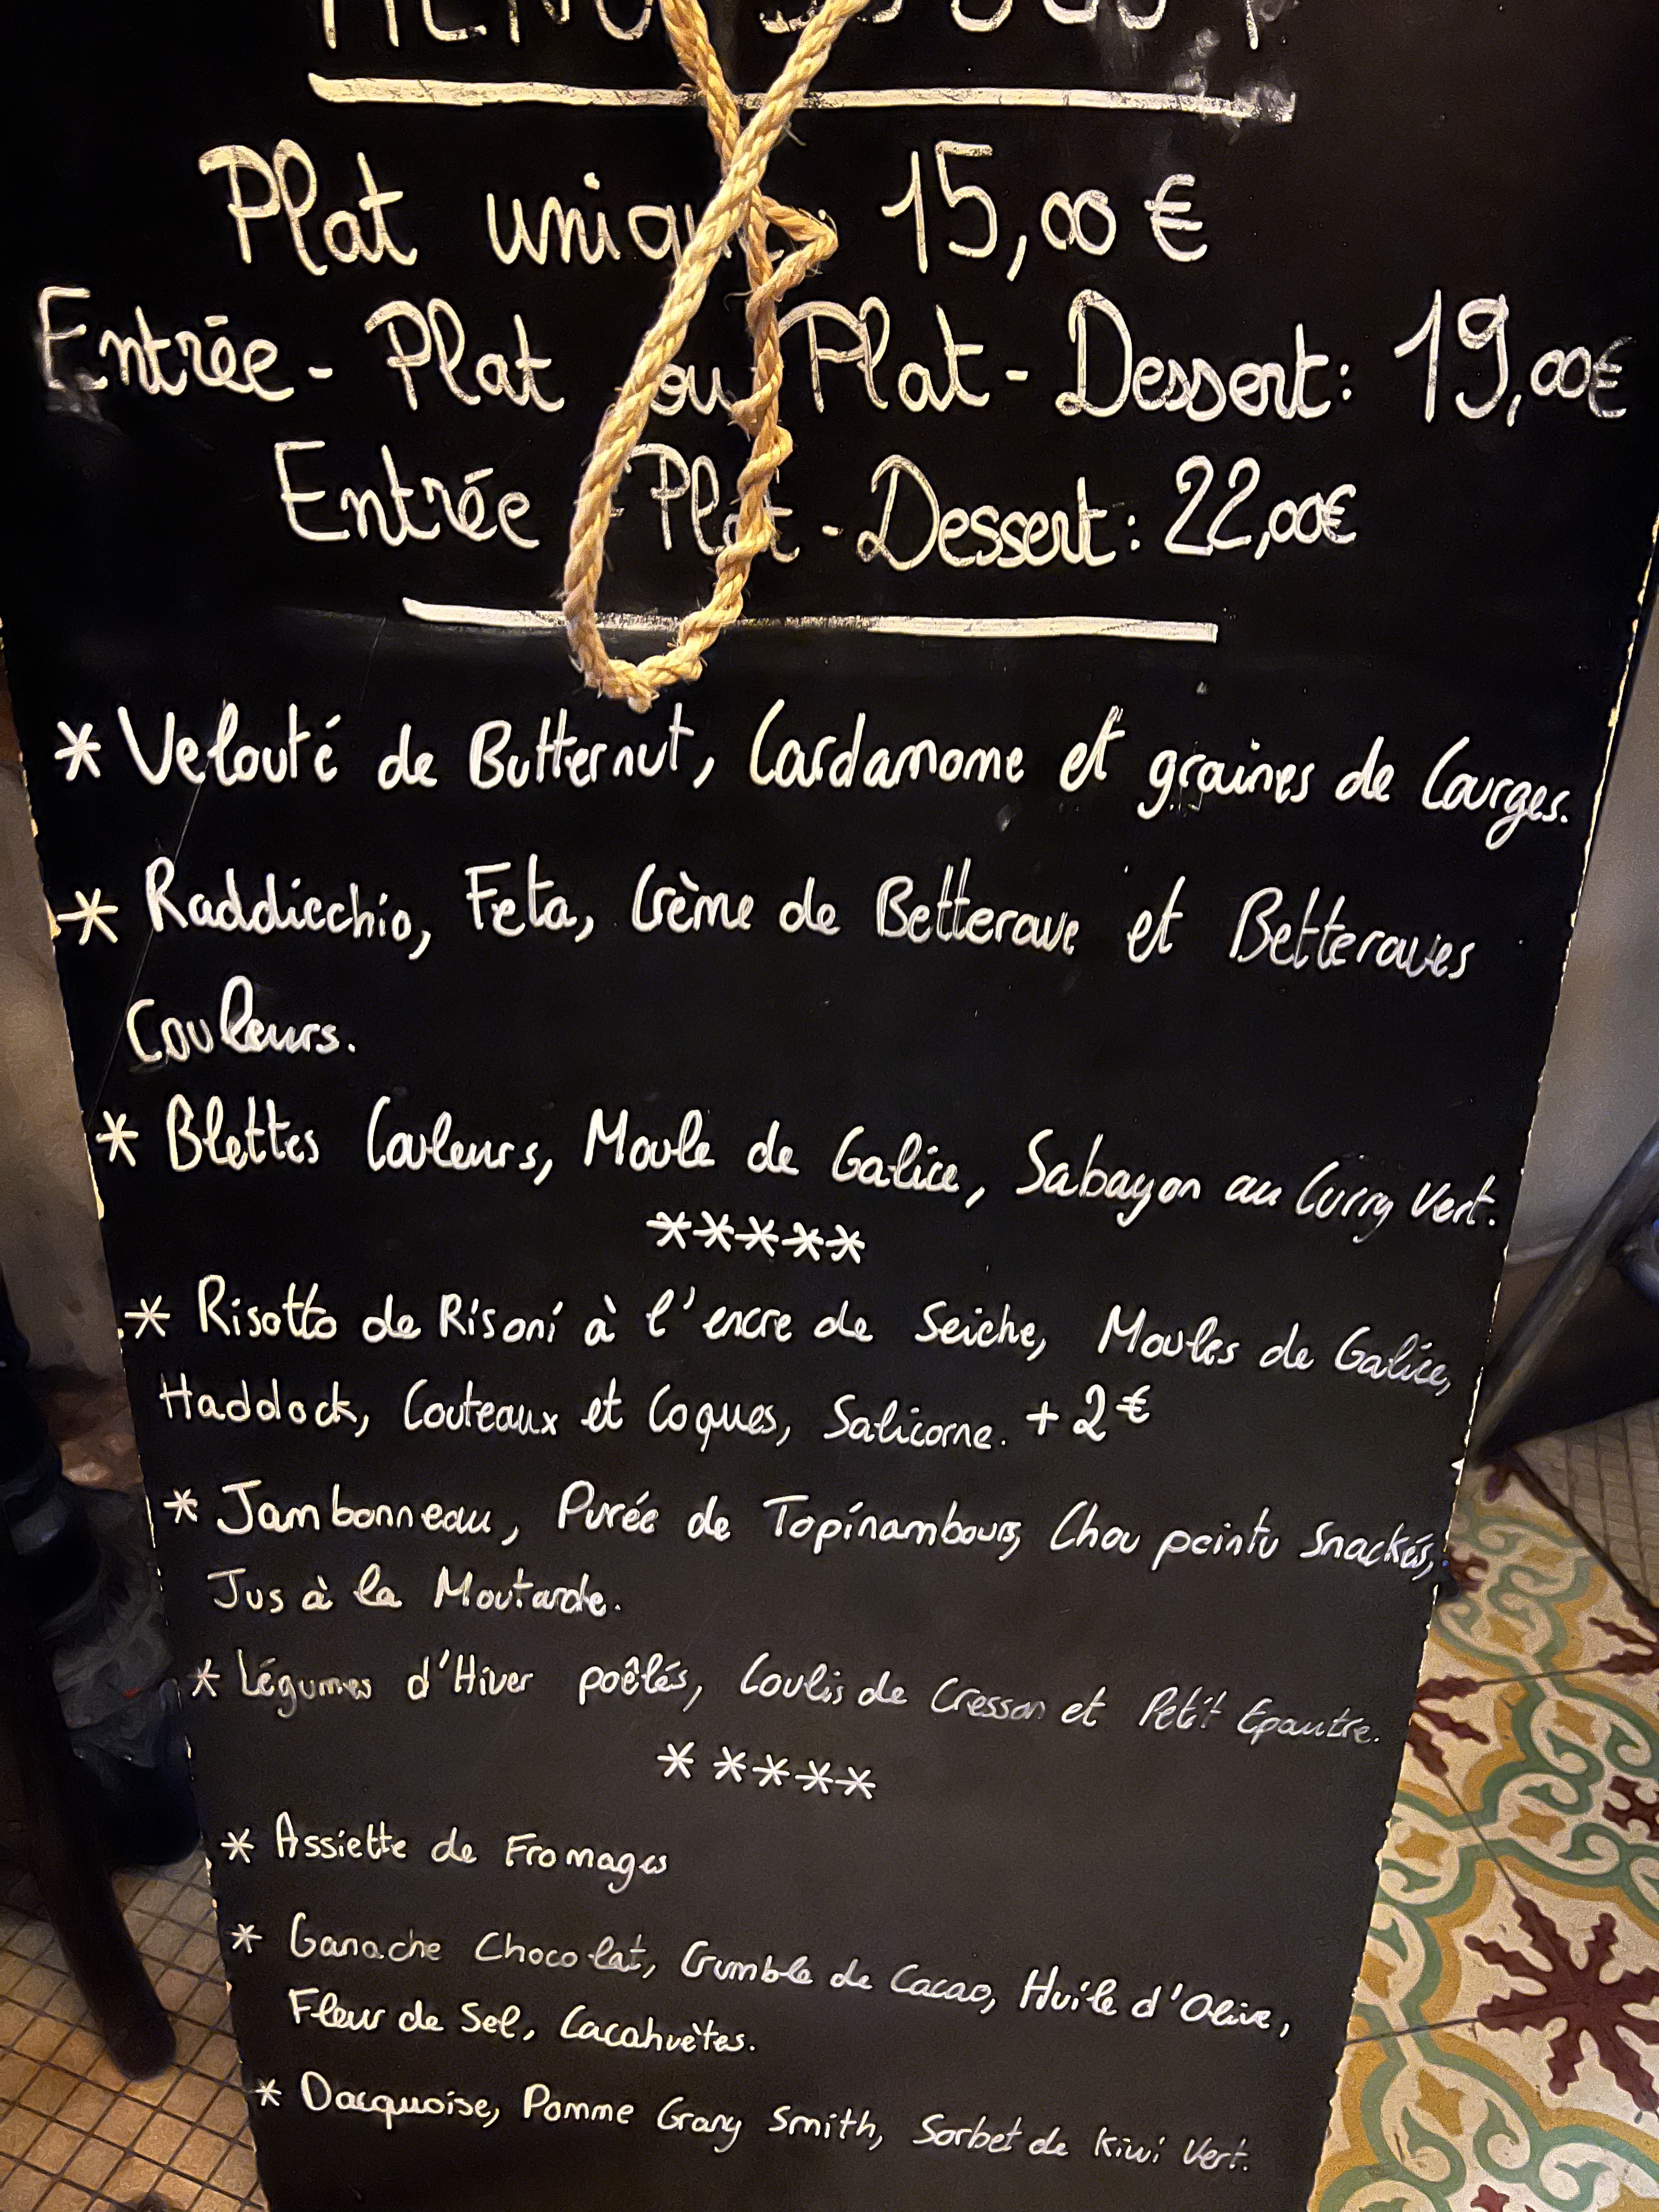 Plat 15,00 €
Entrée - Plat ou Plat - Dessert: 19,00€
Entrée - Plat - Dessert: 22,00€
* Velouté de Butternut, Cardamome et graines de Courges.
* Raddicchio, Feta, Crème de Betterave et Betteraves
Couleurs.
* Blettes Couleurs, Moule de Galice, Sabayon au Curry Vert.
*****
* Risotto de Risoni à l'encre de Seiche, Moules de Galice,
Haddock, Couteaux et Coques, Salicorne. + 2€
* Jambonneau, Purée de Topinambours, Chou pointu Snackés,
Jus à la Moutarde.
* Légumes d'Hiver poêlés, Coulis de Cresson et Petit Epautre.
*****
* Assiette de Fromages
* Ganache Chocolat, Crumble de Cacao, Huile d'Olive,
Fleur de Sel, Cacahuètes.
* Dacquoise, Pomme Grany Smith, Sorbet de Kiwi Vert.